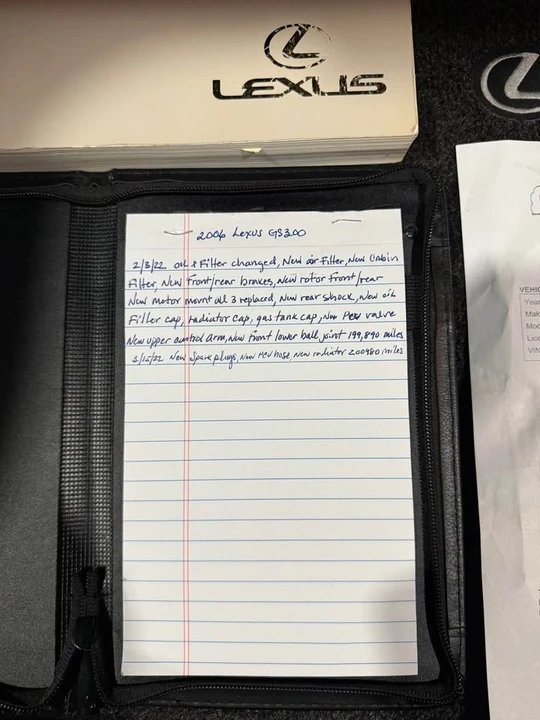 LEXUS
2006 Lexus GS300
2/3/22 oil & Filter changed, New air Filter, New Cabin
Filter, New front/rear brakes, New rotor front/rear
New motor mount all 3 replaced, New rear shock, New oil
Filler cap, radiator cap, gas tank cap, New PCV valve
New upper control arm, New front lower ball joint 199,890 miles
3/15/22 New Spark plugs, New PCV hose, New radiator 200980 miles
VEHIC
Year
Mak
Mod
Lice
VIN